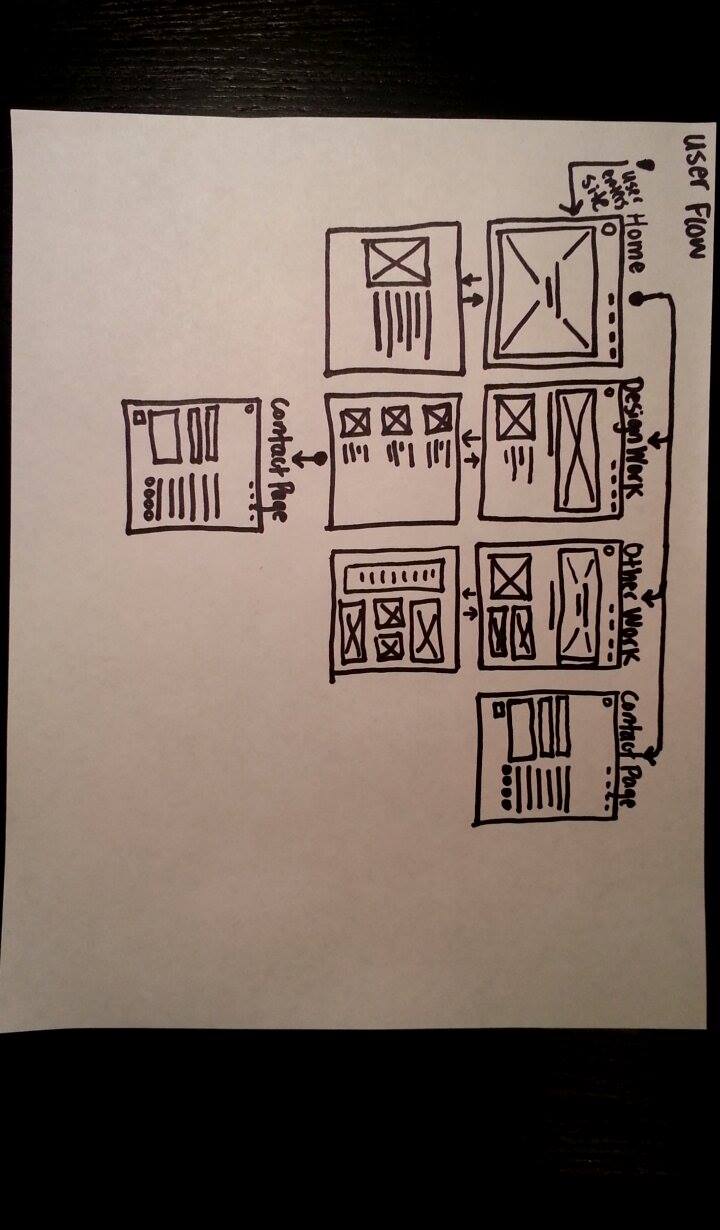 User Flow
user
enters
site
Home
Design Work
Other Work
Contact Page
Contact Page